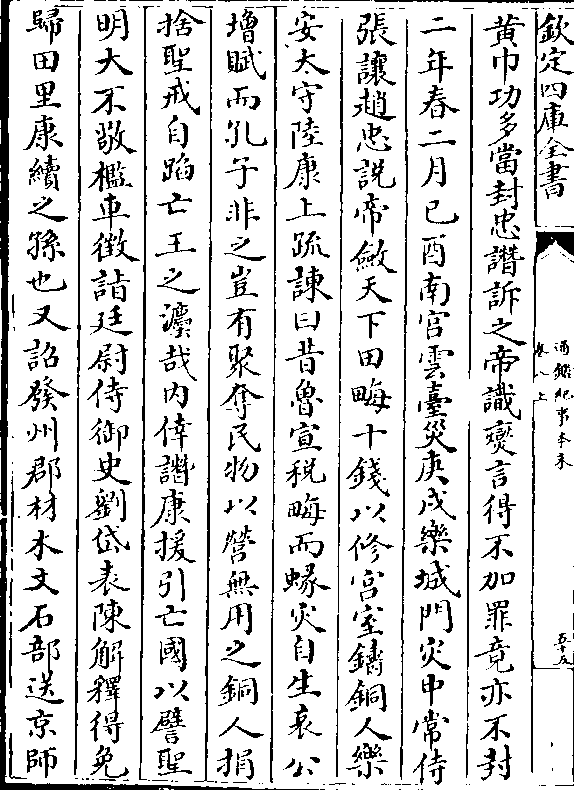 欽定四庫全書
通鑑紀事本末
卷八上
五十五
黃巾功多當封忠譖訴之帝識燮言得不加罪竟亦不封
二年春二月己酉南宮雲臺災庚戌樂城門災中常侍
張讓趙忠說帝斂天下田畮十錢以修宮室鑄銅人樂
安太守陸康上疏諫曰昔魯宣稅畮而蝝災自生哀公
增賦而孔子非之豈有聚奪民物以營無用之銅人捐
捨聖戒自蹈亡王之灋哉内倖譖康援引亡國以譬聖
明大不敬檻車徵詣廷尉侍御史劉岱表陳解釋得免
歸田里康續之孫也又詔發州郡材木文石部送京師